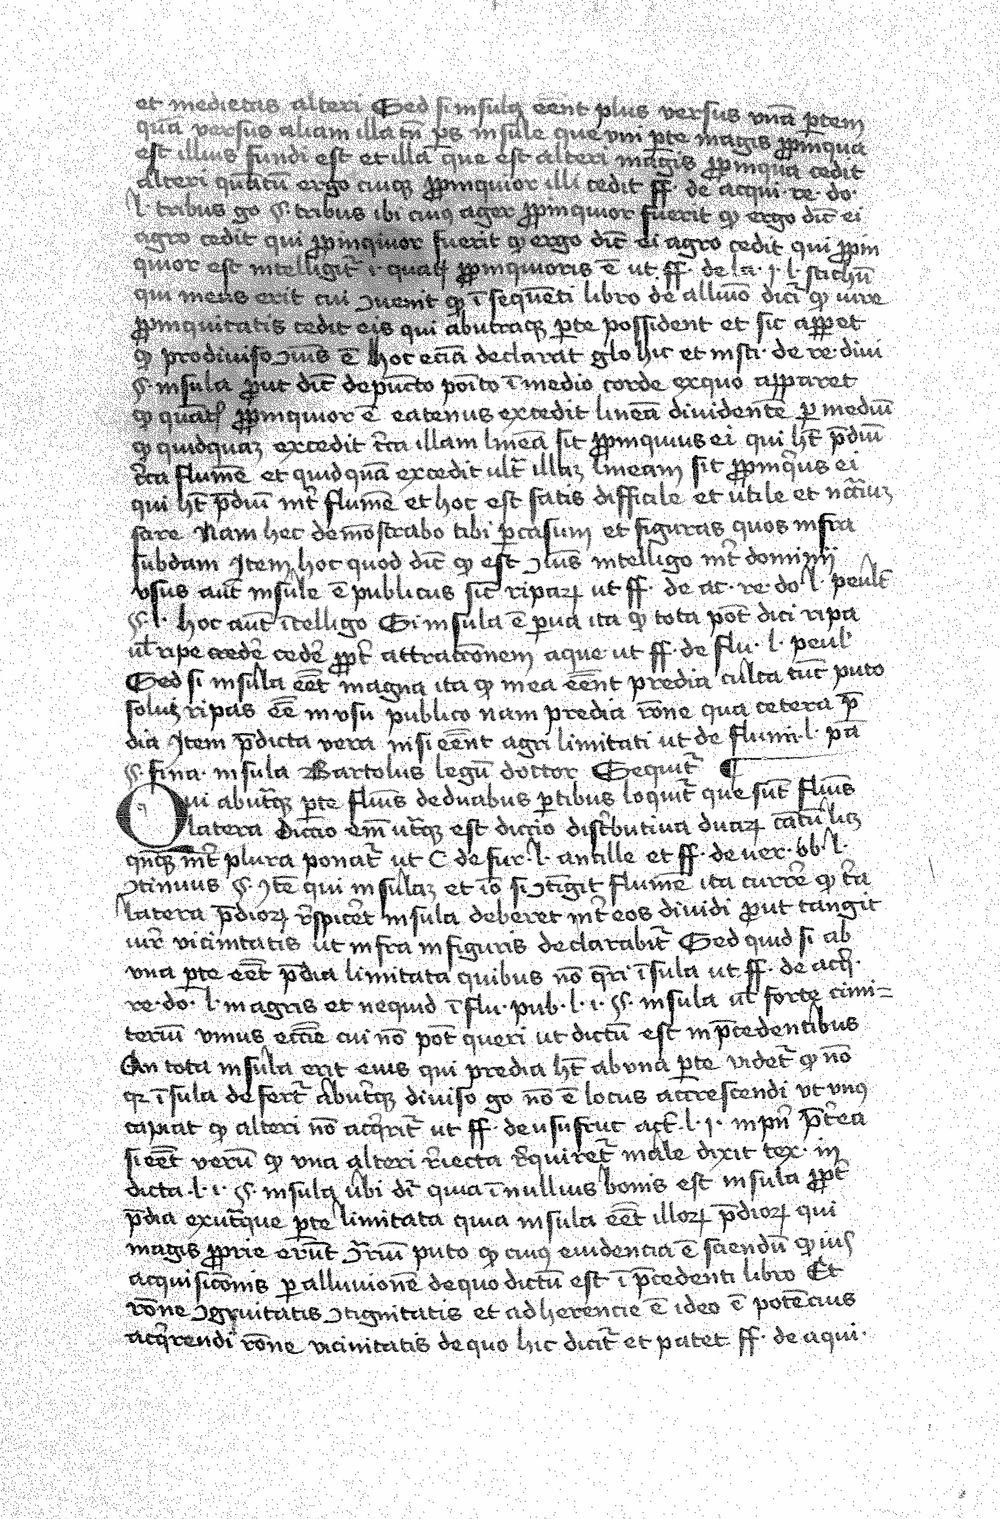 et medietas alteri Sed si insula eēnt plus versus vnā p̄tem
quā versus aliam illa tn̄ ps insule que vni pte magis ꝓpinqua
est illius fundi est et illa que est alteri magis ꝓpinqua cedit
alteri quātū ergo cuiꝰ ꝓpinquior illi cedit ff· de acqui· re· do·
l· tribus go §· tribus ibi cuiꝰ ager ꝓpinquior fuerit ꝙ ergo dic̄ ei
agro cedit qui ꝓpinquior fuerit ꝙ ergo dic̄ ei agro cedit qui ꝓpin
quior est intelligit̄ i· quatꝰ ꝓpinquioris ē ut ff· de la· i· l· stichū
qui meus erit cui ꝯuenit ꝙ ī sequēti libro de alluuio dicī ꝙ iure
ꝓpinquitatis cedit eis qui abutraqꝫ pte possident et sic apꝑet
ꝙ prodiuiso ꝯuīs ē hoc eciā declarat glo hic et insti· de re· diui
§· insula ꝓut dic̄ depūcto poīto ī medio corde exquo apparet
ꝙ quātꝰ ꝓpinquior ē eatenus excedit lineā diuidentē ꝑ mediū
ꝙ quidquaꝫ excedit c̄ca illam lineā sit ꝓpinquius ei qui ht̄ p̄diū
c̄ca flumē et quidquā excedit ult̄ illaꝫ lineam sit ꝓpinq̄us ei
qui ht̄ p̄diū int̄ flumē et hoc est satis difficile et utile et nc̄cīuꝫ
sare Nam hec demōstrabo tibi ꝑ casum et figuras quos infra
subdam Item hoc quod dic̄ ꝙ est ꝯuīs intelligo int̄ dominij
vsus aut̄ insule ē publicus sic̄ riparꝝ ut ff· de ac· re· do l· penlt̄
§· l· hoc aut̄ ītelligo Si insula ē ꝑua ita ꝙ tota pōt dici ripa
ul̄ ripe credēr cedēr ꝓpt̄ attractōnem aque ut ff· de flu· l· penl̄
Sed si insula eēt magna ita ꝙ mea eēnt predia culta tūc puto
solūꝫ ripas eē in vsu publico nam predia rōne qua cetera p̄
dia Item p̄dicta vera nisi eēnt agri limitati ut de flumi· l· pā
§· fina· insula Bartolus legū doctor Sequit̄ ¶
Qui abut̄qꝫ pte fluīs de duabus ptibus loquit̄ que sūt fluīs
latera Diccio em̄ ut̄qꝫ est diccio dist̄butiua duarꝝ
qn̄qꝫ int̄ plura ponat̄ ut C de fur· l· ancille et ff· de uer· ob l·
ꝯtinuus §· Itē qui insulaꝫ et iō si ꝯtigit flumē ita currēr ꝙ c̄ca
latera p̄diorꝝ r̄spicēt insula deberet int̄ eos diuidi ꝓut tangit
iur̄ vicinitatis ut infra in figuris declarabit̄ Sed quid si ab
vna pte eēt p̄dia limitata quibus nō q̄ri īsula ut ff· de acq̄·
re· do· l· in agris et nequid ī flu· pub· l· i· §· insula ul̄ forte cimi=
teriū vnius ecc̄ie cui nō pōt queri ut dictū est in p̄cedentibus
An tota insula erit eius qui predia ht̄ ab vna pte videt̄ ꝙ nō
qꝛ īsula defert̄ abut̄qꝫ diuiso go nō ē locus accrescendi ut vnꝰ
capiat ꝙ alteri nō acq̄rit̄ ut ff· de usufruc acc̄· l· i· in pn̄ p̄terea
si eēt verū ꝙ vna alteri r̄iecta acquiret̄ male dixit tex· in
dicta· l· i· §· insula ubi dr̄ quia ī nullius bonis est insula ꝓpt̄
p̄dia exut̄que pte limitata quia insula eēt illorꝝ p̄diorꝝ qui
magis ꝓprie erūt ꝯr̄iū puto ꝙ cuiꝰ euidencia ē sciendū ꝙ iuſ
acquisicōnis ꝑ alluuionē de quo dictū est ī p̄cedenti libro Et
rōne ꝯgruitatis ꝯtignitatis et adherencie ē ideo ē potēcius
acq̄rendi rōne vicinitatis de quo hic dicit̄ et patet ff· de aqui·